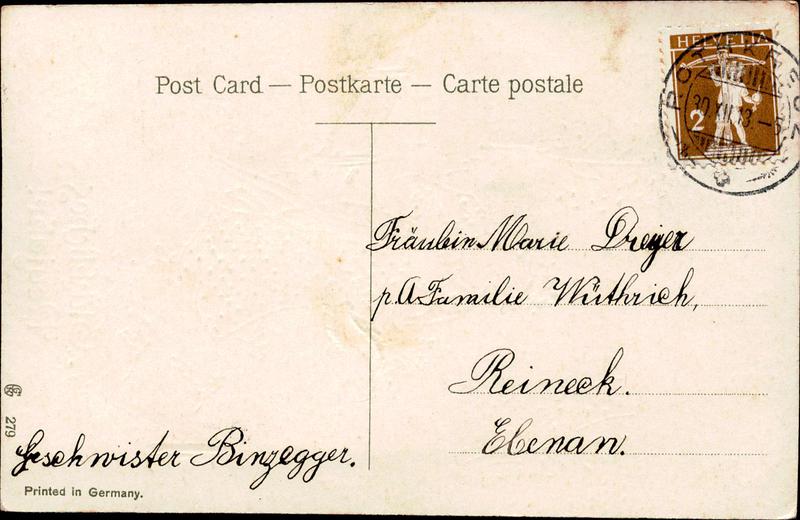 Post Card — Postkarte — Carte postale
HELVETIA
30.XII.13.—5
2
Fräulein Marie Dreyer
p.A. Familie Wüthrich,
Reineck.
Ebenan.
279
Geschwister Binzegger.
Printed in Germany.